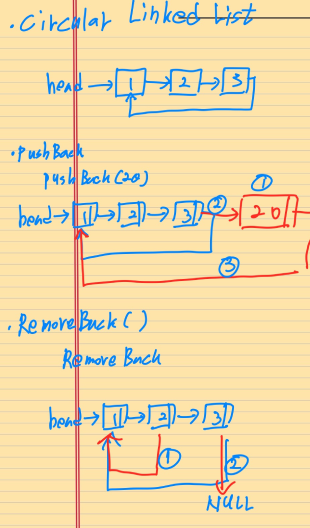 · Circular Linked List
head → 1 → 2 → 3
· pushBack
pushBack(20)
①
head → 1 → 2 → 3 ② → 20
③
· RemoveBack()
Remove Back
head → 1 → 2 → 3
① ②
NULL